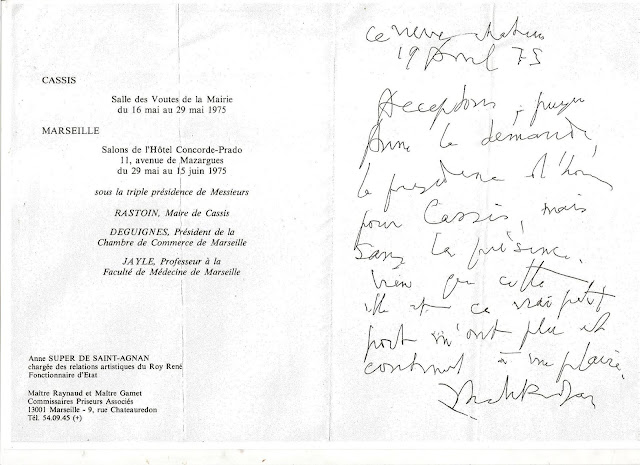 CASSIS
Salle des Voutes de la Mairie
du 16 mai au 29 mai 1975
MARSEILLE
Salons de l'Hôtel Concorde-Prado
11, avenue de Mazargues
du 29 mai au 15 juin 1975
sous la triple présidence de Messieurs
RASTOIN, Maire de Cassis
DEGUIGNES, Président de la
Chambre de Commerce de Marseille
JAYLE, Professeur à la
Faculté de Médecine de Marseille
Anne SUPER DE SAINT-AGNAN
chargée des relations artistiques du Roy René
Fonctionnaire d'Etat
Maître Raynaud et Maître Gamet
Commissaires Priseurs Associés
13001 Marseille - 9, rue Chateauredon
Tél. 54.09.45 (+)
19 Avril 75
Acceptons,
Anne le demande,
la présidence d'hon
pour Cassis, mais
sans la présence.
bien que cette
ville et ce vrai petit
port m'ont plu et
à me plaire.